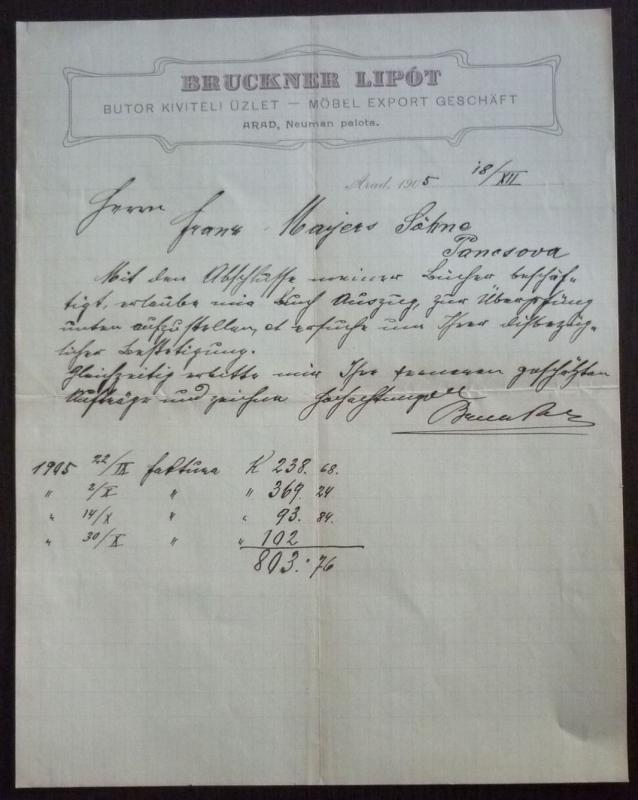 BRUCKNER LIPÓT
BUTOR KIVITELI ÜZLET — MÖBEL EXPORT GESCHÄFT
ARAD, Neuman palota.
Arad, 1905 18/XII
Herrn Franz Mayers Söhne
Pancsova
Mit dem Abschlusse meiner Bücher beschäf-
tigt, erlaube mir Buch Auszug, zur Überprüfung
unten aufzustellen, et ersuche um Ihrer disbezüg-
licher Bestetigung.
Gleichzeitig erbitte mir Ihre ferneren geschätzten
Aufträge und zeichne Hochachtungsvoll
1905 22/IX faktura K 238. 68.
" 2/X " " 369. 24
" 14/X " " 93. 84.
" 30/X " " 102
803. 76